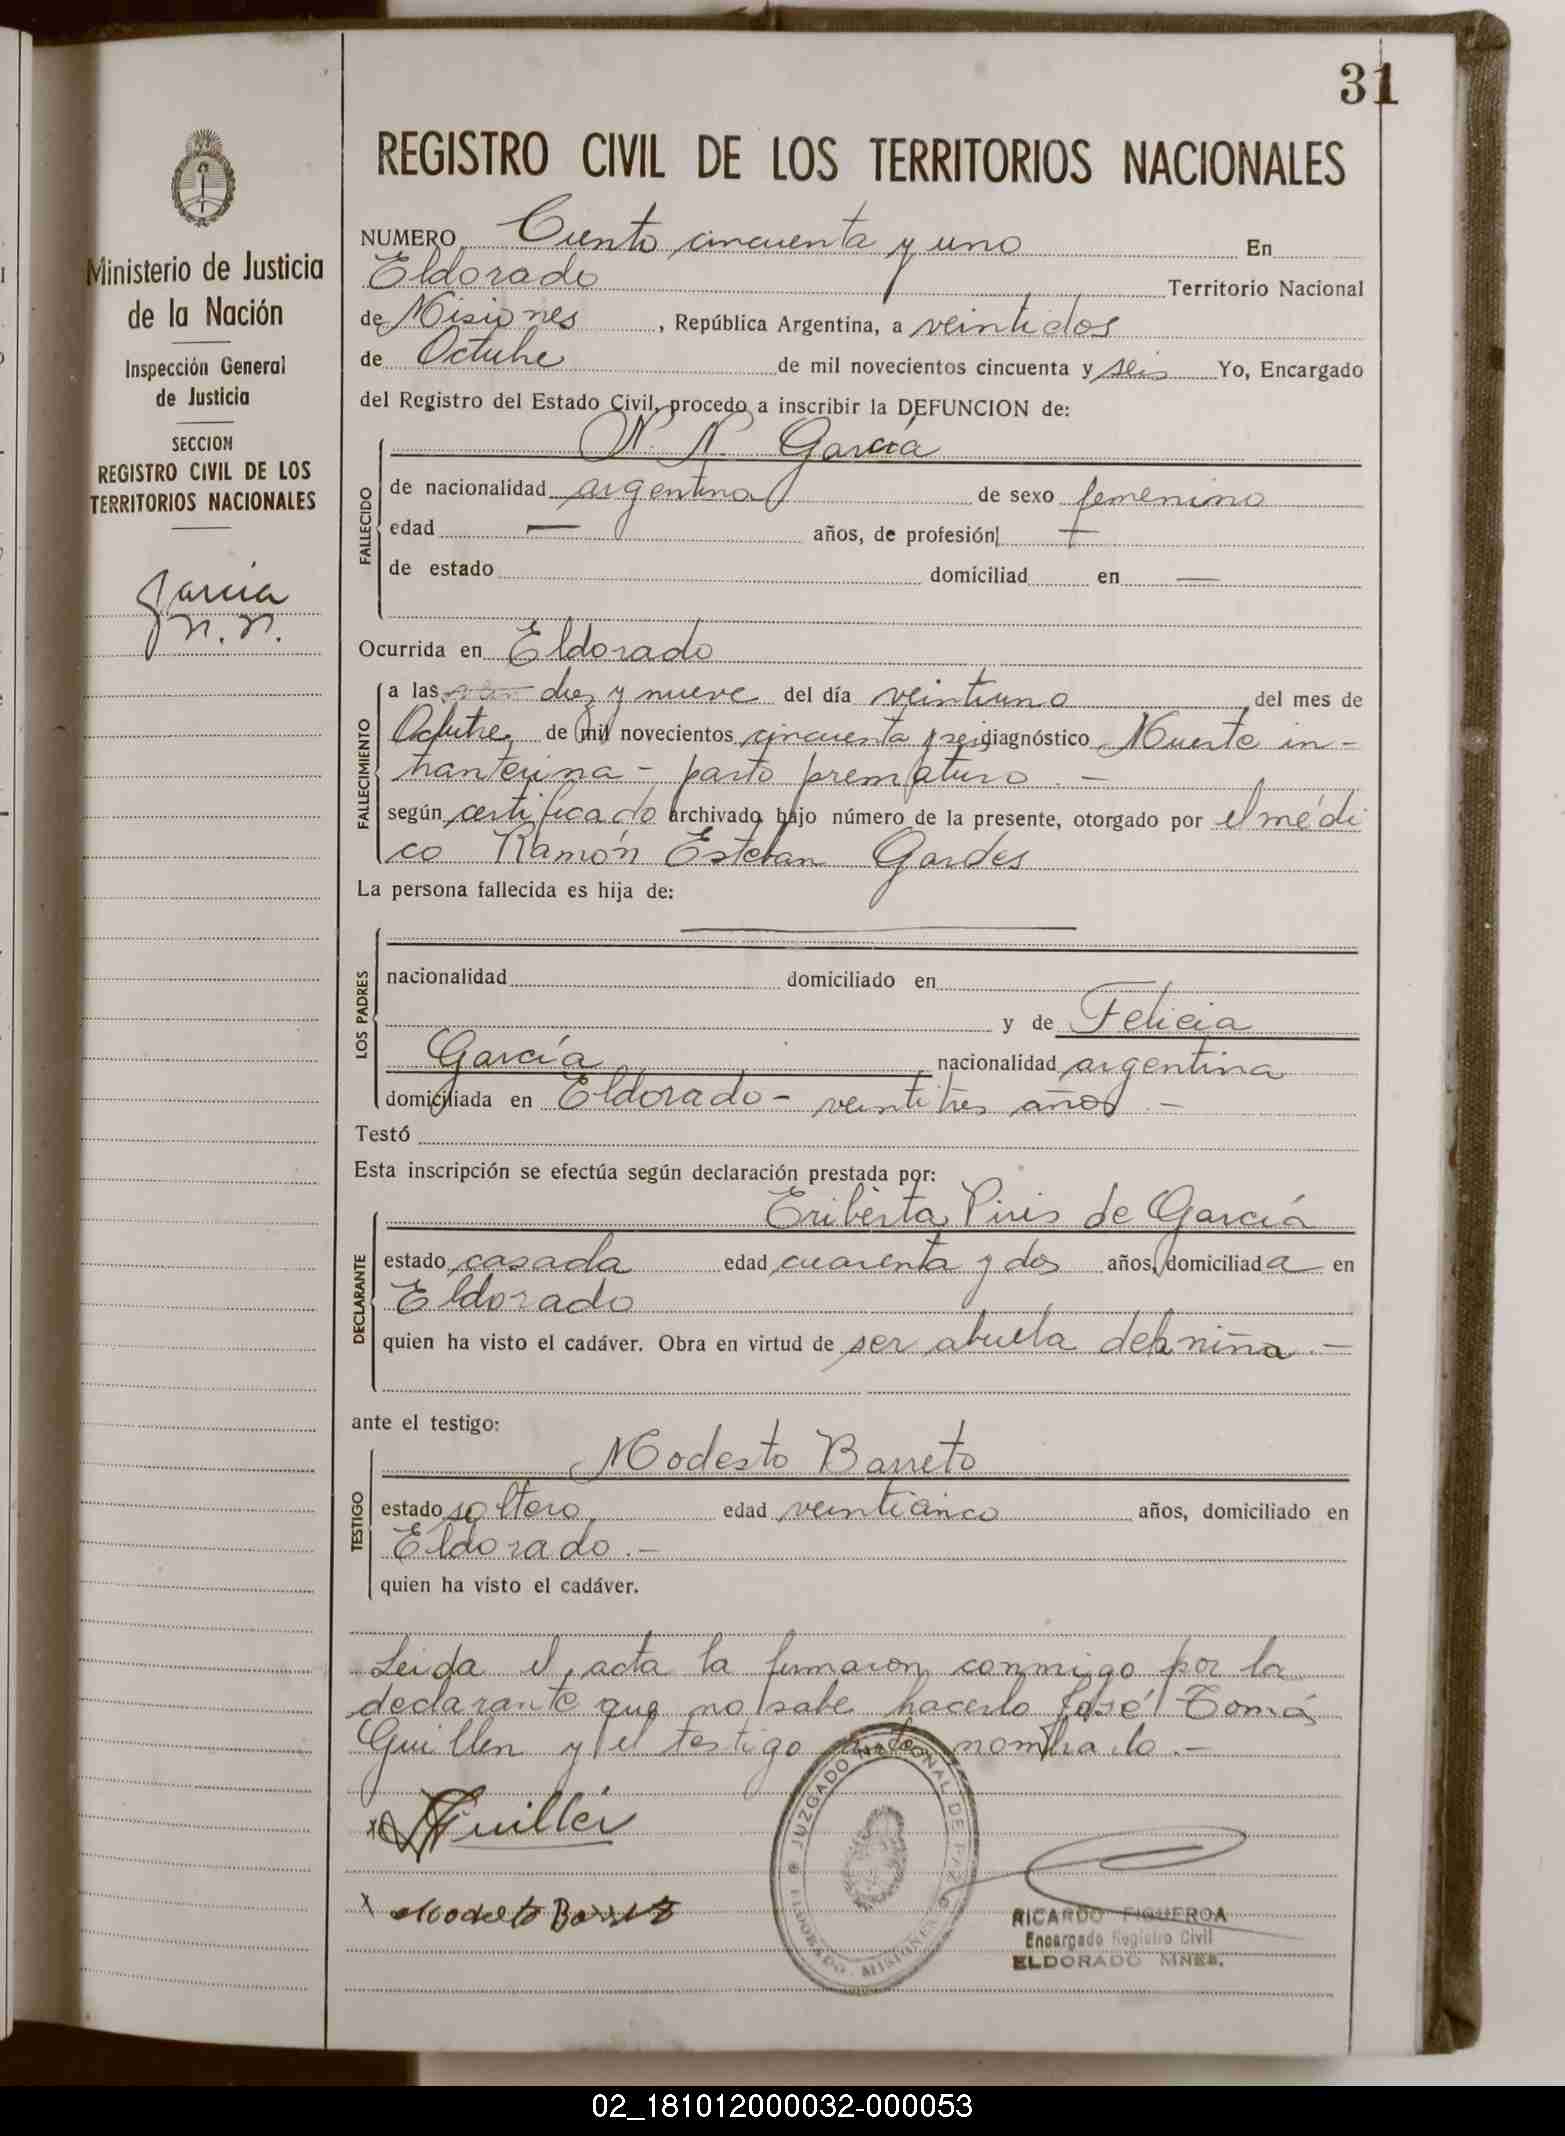 31
REGISTRO CIVIL DE LOS TERRITORIOS NACIONALES
Ministerio de Justicia
de la Nación
Inspección General
de Justicia
SECCION
REGISTRO CIVIL DE LOS
TERRITORIOS NACIONALES
García
N. N.
NUMERO Ciento cincuenta y uno En
Eldorado Territorio Nacional
de Misiones, República Argentina, a veintidos
de Octubre de mil novecientos cincuenta y seis Yo, Encargado
del Registro del Estado Civil, procedo a inscribir la DEFUNCION de:
N. N. García
FALLECIDO
de nacionalidad argentina de sexo femenino
edad — años, de profesión —
de estado domiciliad en —
Ocurrida en Eldorado
FALLECIMIENTO
a las diez y nueve del día veintiuno del mes de
Octubre de mil novecientos cincuenta y seis diagnóstico Muerte in-
trauterina - parto prematuro. -
según certificado archivado bajo número de la presente, otorgado por el médi
co Ramón Esteban Gardes
La persona fallecida es hija de:
LOS PADRES
nacionalidad domiciliado en
y de Felicia
García nacionalidad argentina
domiciliada en Eldorado - veintitres años. -
Testó
Esta inscripción se efectúa según declaración prestada por:
Eriberta Piris de García
DECLARANTE
estado casada edad cuarenta y dos años, domiciliada en
Eldorado
quien ha visto el cadáver. Obra en virtud de ser abuela de la niña. -
ante el testigo:
Modesto Barreto
TESTIGO
estado soltero edad veinticinco años, domiciliado en
Eldorado. -
quien ha visto el cadáver.
Leida el acta la firmaron conmigo por la
declarante que no sabe hacerlo José Tomás
Guillen y el testigo ante nombrado. -
x Guillén
x Modesto Barreto
JUZGADO NACIONAL DE PAZ
ELDORADO - MISIONES
RICARDO FIGUEROA
Encargado Registro Civil
ELDORADO MNES.
02_181012000032-000053